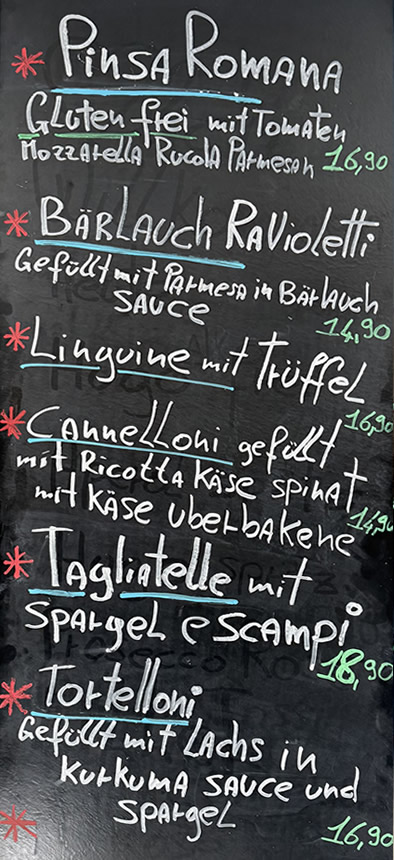 * PINSA ROMANA
Gluten frei mit Tomaten
Mozzarella Rucola Parmesan 16,90
* BÄRLAUCH RAVioletti
Gefüllt mit Parmesa in Bärlauch
SAUCE
14,90
* Linguine mit Trüffel
16,90
* Cannelloni gefüllt
mit Ricotta Käse spinat
mit Käse uberbakene
14,90
* Tagliatelle mit
Spargel e Scampi
18,90
* Tortelloni
Gefüllt mit Lachs in
Kurkuma Sauce und
Spargel
* 16,90